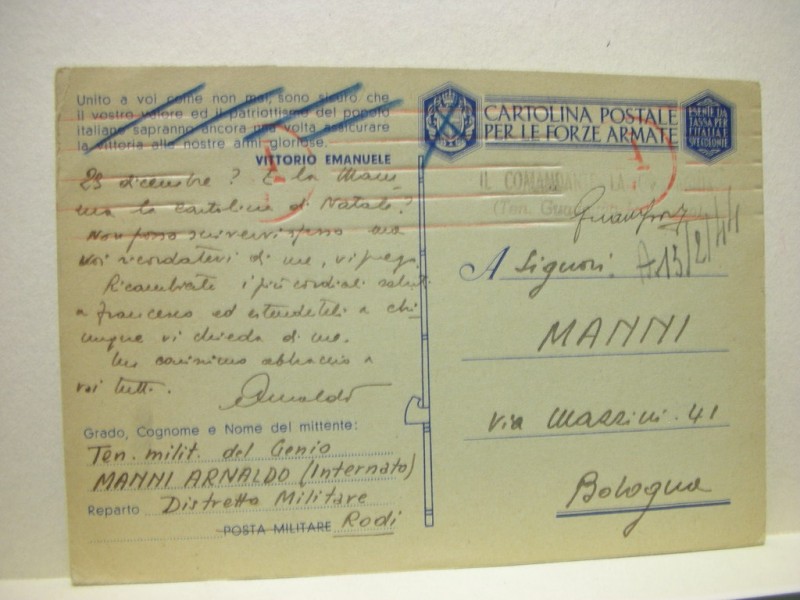 Unito a voi come non mai, sono sicuro che
il vostro valore ed il patriottismo del popolo
italiano sapranno ancora una volta assicurare
la vittoria alle nostre armi gloriose.
VITTORIO EMANUELE
25 dicembre? E la Mam
ma la cartolina di Natale?
Non posso scrivervi spesso ma
voi ricordatevi di me, vi prego.
Ricambiate i più cordiali saluti
a Francesco ed estendeteli a chi
unque vi chieda di me.
Un carissimo abbraccio a
voi tutti.
Arnaldo
Grado, Cognome e Nome del mittente:
Ten. milit. del Genio
MANNI ARNALDO (Internato)
Reparto Distretto Militare
POSTA MILITARE Rodi
CARTOLINA POSTALE
PER LE FORZE ARMATE
ESENTE DA
TASSA PER
L'ITALIA E
IL COMANDANTE LA
(Ten.
A 13/2/44
A Signori:
MANNI
Via Mazzini. 41
Bologna